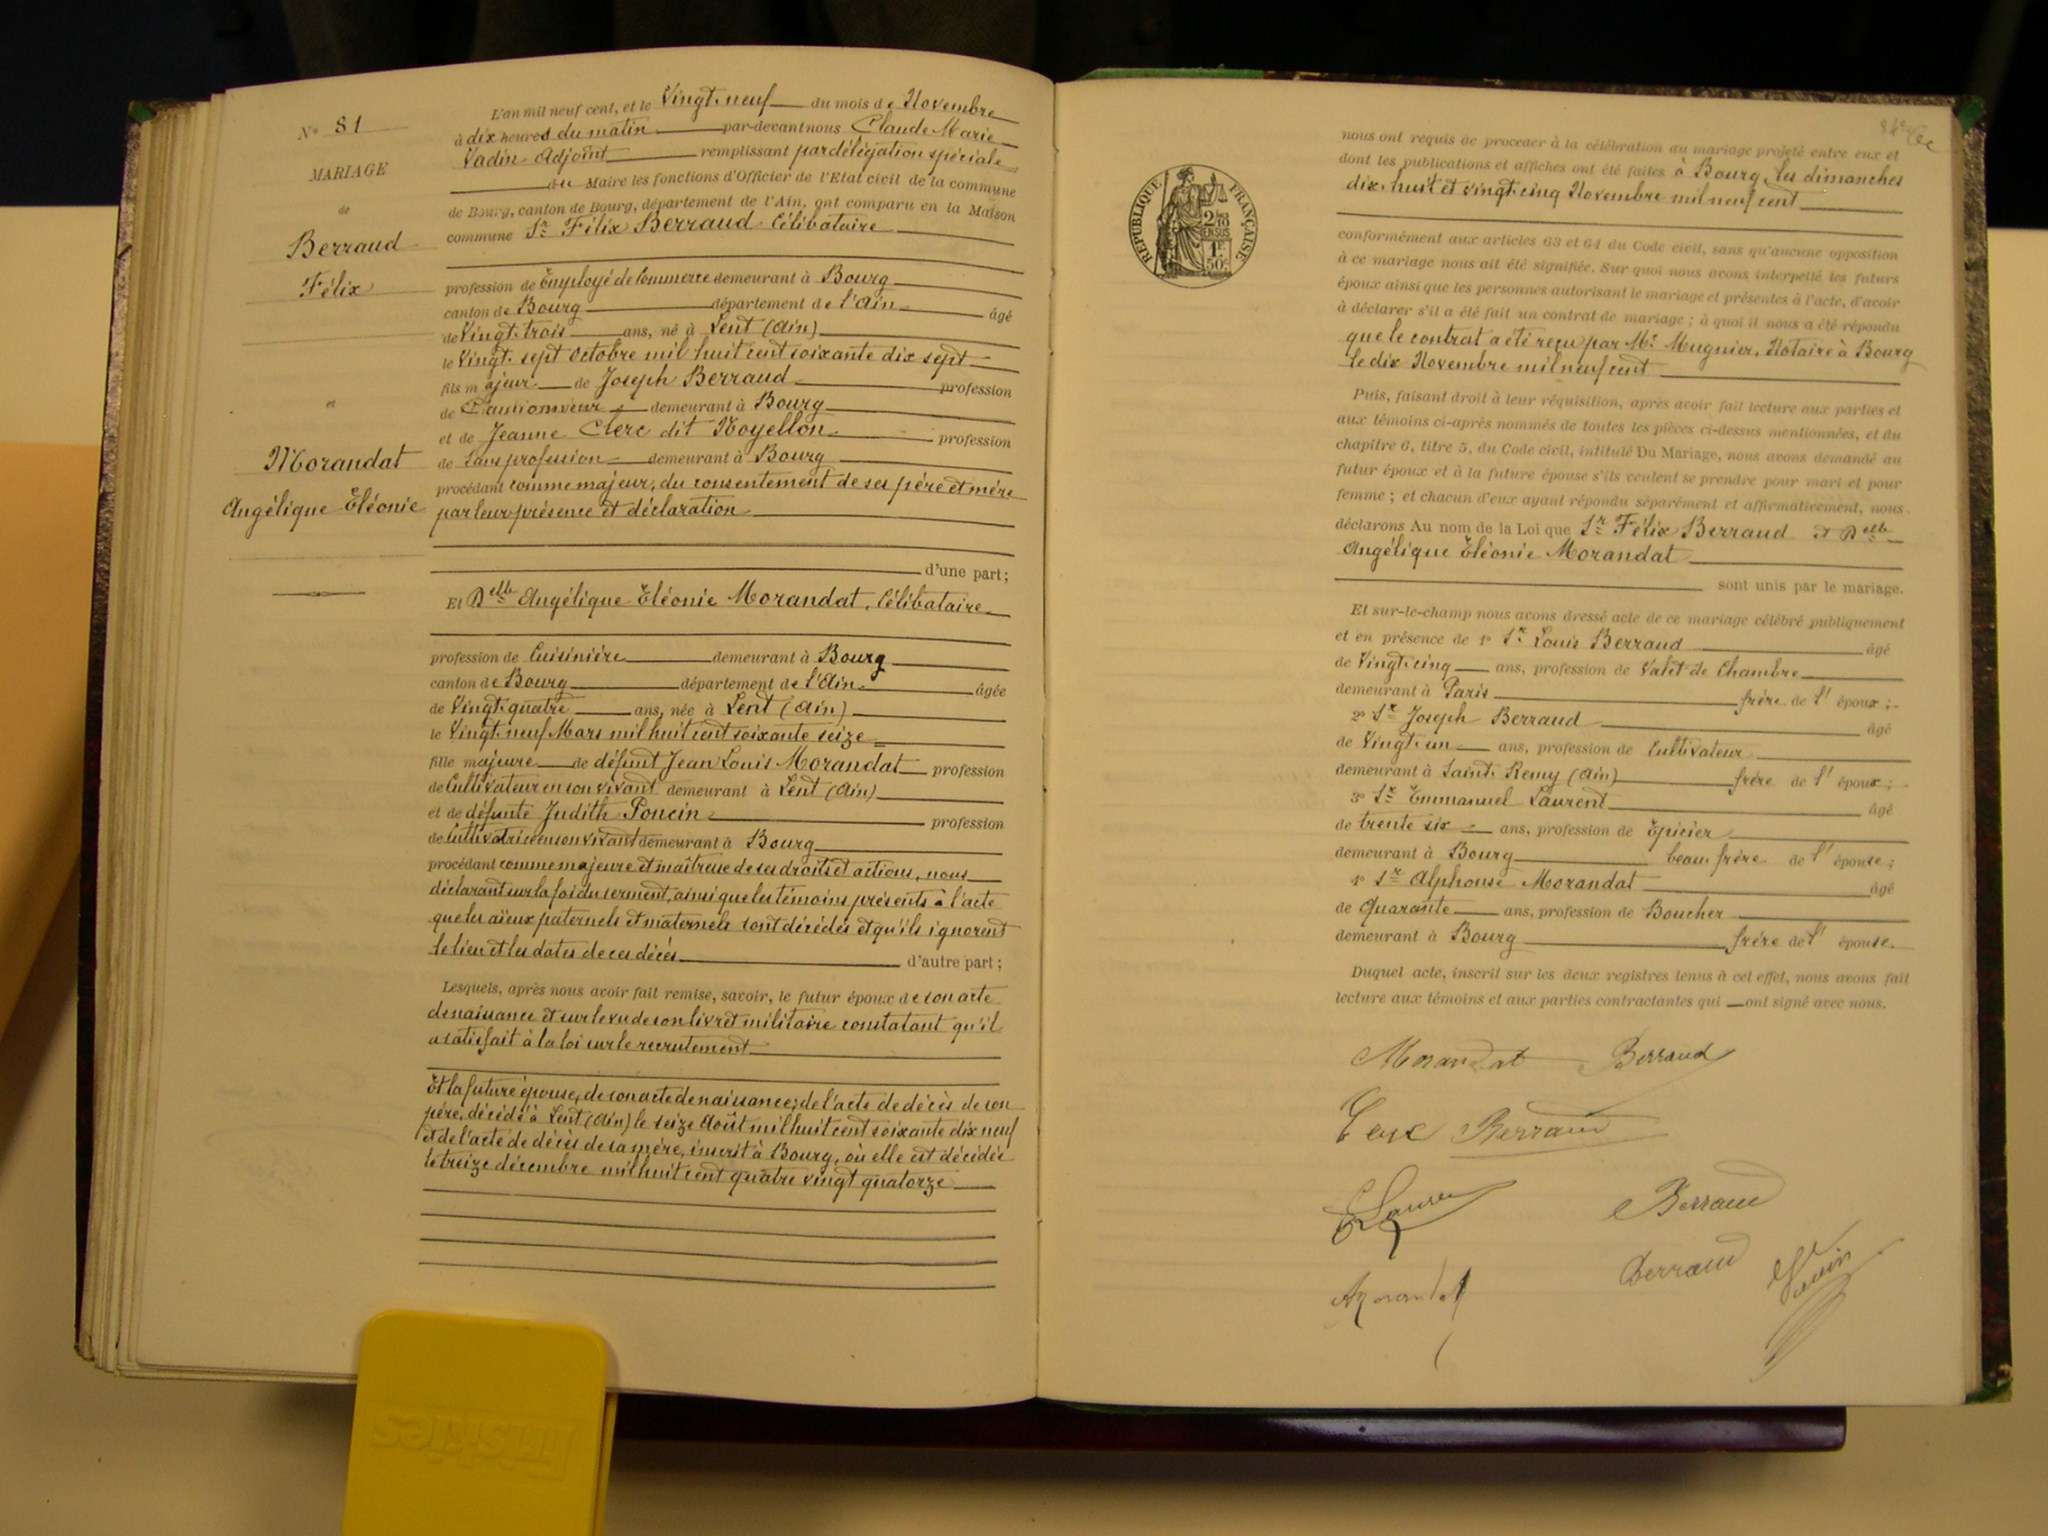 N° 81
MARIAGE
de
Berraud
Félix
et
Morandat
Angélique Eléonie
L'an mil neuf cent, et le Vingt-neuf du mois de Novembre
à dix heures du matin par-devant nous Claude Marie
Vadin Adjoint remplissant par délégation spéciale
du Maire les fonctions d'Officier de l'Etat civil de la commune
de Bourg, canton de Bourg, département de l'Ain, ont comparu en la Maison
commune Sr Félix Berraud Célibataire
profession de Employé de Commerce demeurant à Bourg
canton de Bourg département de l'Ain âgé
de Vingt-trois ans, né à Lent (Ain)
le Vingt-sept Octobre mil huit cent soixante dix sept
fils majeur de Joseph Berraud profession
de Camionneur demeurant à Bourg
et de Jeanne Clerc dit Noyellon profession
de Sans profession demeurant à Bourg
procédant comme majeur, du consentement de ses père et mère
par leur présence et déclaration
d'une part;
Et Delle Angélique Eléonie Morandat, Célibataire
profession de Cuisinière demeurant à Bourg
canton de Bourg département de l'Ain âgée
de Vingt-quatre ans, née à Lent (Ain)
le Vingt neuf Mars mil huit cent soixante seize
fille majeure de défunt Jean Louis Morandat profession
de Cultivateur en son vivant demeurant à Lent (Ain)
et de défunte Judith Poncin profession
de Cultivatrice en son vivant demeurant à Bourg
procédant comme majeure et maîtresse de ses droits et actions, nous
déclarant sur la foi du serment, ainsi que les témoins présents à l'acte
que les aïeux paternels et maternels sont décédés et qu'ils ignorent
le lieu et les dates de ces décès d'autre part;
Lesquels, après nous avoir fait remise, savoir, le futur époux de son acte
de naissance et sur le vu de son livret militaire constatant qu'il
a satisfait à la loi sur le recrutement
Et la future épouse, de son acte de naissance; de l'acte de décès de son
père, décédé à Lent (Ain) le seize Août mil huit cent soixante dix neuf
et de l'acte de décès de sa mère, inscrit à Bourg, où elle est décédée
le treize décembre mil huit cent quatre vingt quatorze
RÉPUBLIQUE FRANÇAISE
1F
50c
nous ont requis de procéder à la célébration du mariage projeté entre eux et
dont les publications et affiches ont été faites à Bourg, les dimanches
dix-huit et vingt-cinq Novembre mil neuf cent
conformément aux articles 63 et 64 du Code civil, sans qu'aucune opposition
à ce mariage nous ait été signifiée. Sur quoi nous avons interpellé les futurs
époux ainsi que les personnes autorisant le mariage et présentes à l'acte, d'avoir
à déclarer s'il a été fait un contrat de mariage; à quoi il nous a été répondu
que le contrat a été reçu par Me Mugnier, Notaire à Bourg
le dix Novembre mil neuf cent
Puis, faisant droit à leur réquisition, après avoir fait lecture aux parties et
aux témoins ci-après nommés de toutes les pièces ci-dessus mentionnées, et du
chapitre 6, titre 5, du Code civil, intitulé Du Mariage, nous avons demandé au
futur époux et à la future épouse s'ils veulent se prendre pour mari et pour
femme; et chacun d'eux ayant répondu séparément et affirmativement, nous
déclarons Au nom de la Loi que Sr Félix Berraud et Delle
Angélique Eléonie Morandat
sont unis par le mariage.
Et sur-le-champ nous avons dressé acte de ce mariage célébré publiquement
et en présence de 1° Sr Louis Berraud âgé
de Vingt-cinq ans, profession de Valet de Chambre
demeurant à Paris frère de l'époux;
2° Sr Joseph Berraud âgé
de Vingt-un ans, profession de Cultivateur
demeurant à Saint-Remy (Ain) frère de l'époux;
3° Sr Emmanuel Laurent âgé
de trente six ans, profession de Epicier
demeurant à Bourg beau-frère de l'épouse;
4° Sr Alphonse Morandat âgé
de Quarante ans, profession de Boucher
demeurant à Bourg frère de l'épouse.
Duquel acte, inscrit sur les deux registres tenus à cet effet, nous avons fait
lecture aux témoins et aux parties contractantes qui ont signé avec nous.
Morandat Berraud
Berraud
Berraud
Berraud